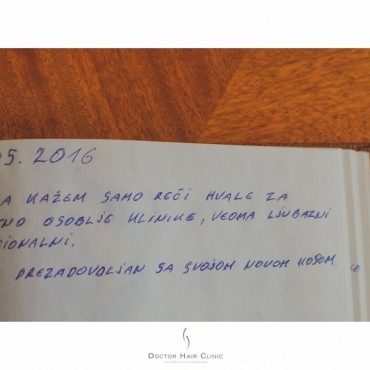 05. 2016
A KAŽEM SAMO REČI HVALE ZA
NO OSOBLJE KLINIKE, VEOMA LJUBAZNI
SIONALNI.
PREZADOVOLJAN SA SVOJOM NOVOM KOSOM.
DOCTOR HAIR CLINIC